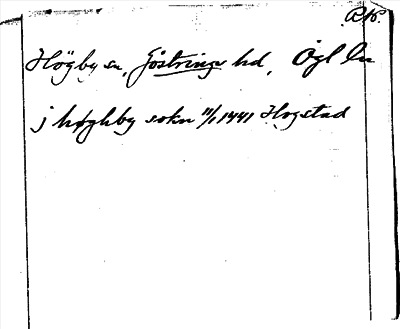 RAp.
Högby sn, Göstrings hd, Ögl ln
j høghby sokn 11/1 1441 Hogstad